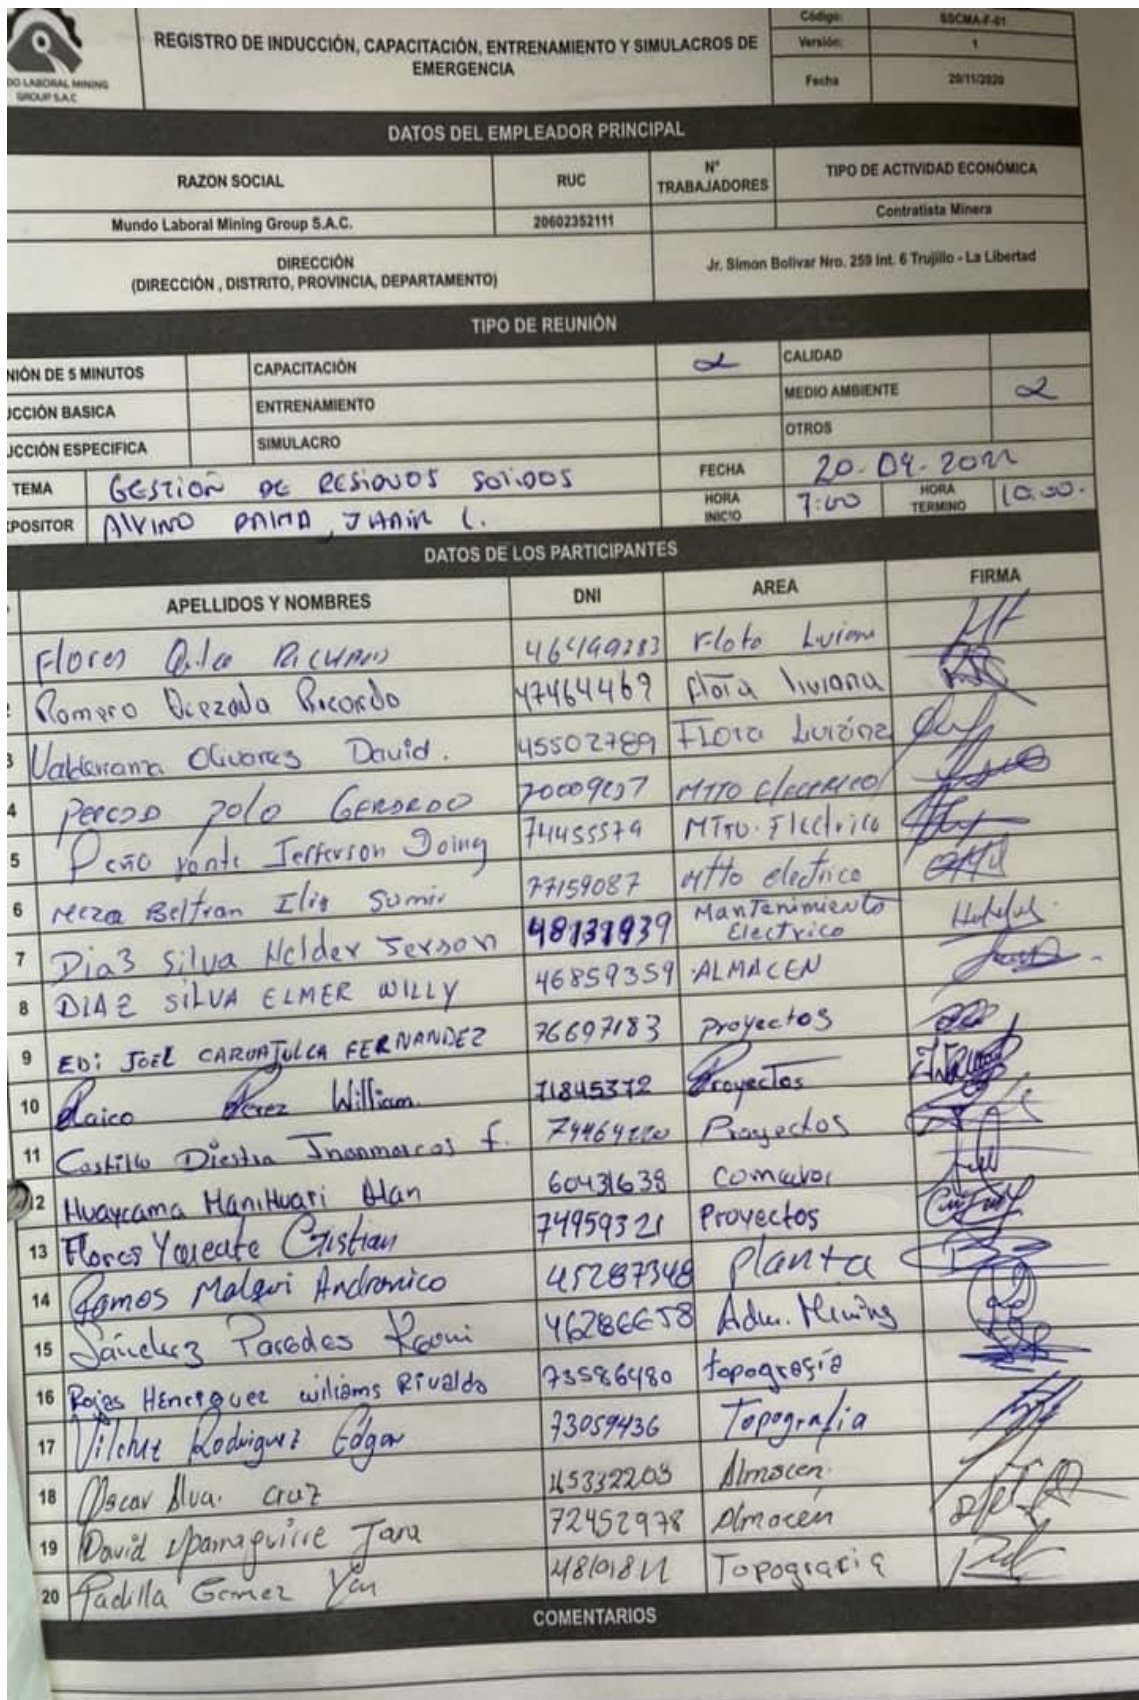 DO LABORAL MINING
GROUP S.A.C
REGISTRO DE INDUCCIÓN, CAPACITACIÓN, ENTRENAMIENTO Y SIMULACROS DE
EMERGENCIA
Código: SSCMA-F-01
Versión: 1
Fecha 20/11/2020
DATOS DEL EMPLEADOR PRINCIPAL
RAZON SOCIAL RUC N° TRABAJADORES TIPO DE ACTIVIDAD ECONÓMICA
Mundo Laboral Mining Group S.A.C. 20602352111 Contratista Minera
DIRECCIÓN
(DIRECCIÓN , DISTRITO, PROVINCIA, DEPARTAMENTO)
Jr. Simon Bolivar Nro. 259 Int. 6 Trujillo - La Libertad
TIPO DE REUNIÓN
NIÓN DE 5 MINUTOS CAPACITACIÓN CALIDAD
UCCIÓN BASICA ENTRENAMIENTO MEDIO AMBIENTE
UCCIÓN ESPECIFICA SIMULACRO OTROS
TEMA GESTIÓN DE RESIDUOS SOLIDOS FECHA 20-04-2022
POSITOR ALVINO PALMA, JHAIR C. HORA INICIO 7:00 HORA TERMINO 10:00
DATOS DE LOS PARTICIPANTES
APELLIDOS Y NOMBRES DNI AREA FIRMA
Flores RICHARD Flota
2 Romero Quezada Ricardo 47464469 flota liviana
3 Valderrama Olivares David. 45502789 Flota
4 POLO GERARDO MTTO Electrico
5 Jefferson 74455579 MTTO. Electrico
6 Meza Beltran 77159087 Mtto electrico
7 Diaz Silva Helder Jerson 48131939 Mantenimiento Electrico
8 DIAZ SILVA ELMER WILLY 46859359 ALMACEN
9 EDI JOEL CARUAJULCA FERNANDEZ 76697183 Proyectos
10 Perez William. 71845372 Proyectos
11 Castillo Diestra F. Proyectos
12 Huaycama Manihuari Alan 60431638
13 Flores Cristian 74959321 Proyectos
14 Ramos Malqui Andronico 45287348 Planta
15 Sánchez Paredes 46286658 Adm. Mining
16 Rojas Henriquez wiliams Rivaldo 73586480 topografía
17 Rodriguez Edgar 73059436 Topografia
18 Oscar Alva. cruz 45332203 Almacen.
19 David Yparraguirre Jara 72452978 Almacén
20 Padilla Gomez Topografia
COMENTARIOS